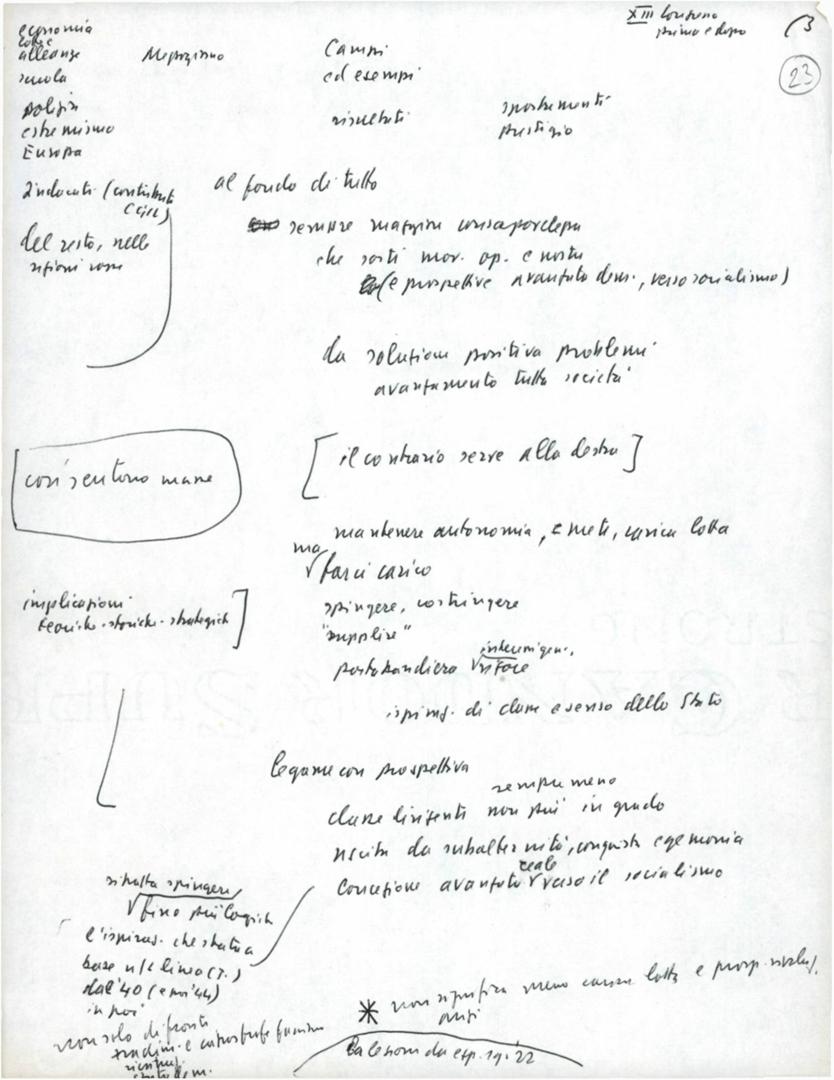 XIII Congresso
prima e dopo
(3
23
economia
alleanze
scuola
Mezzogiorno
Campi
ed esempi
polizia
estremismo
Europa
risultati
spostamenti
prestigio
Sindacati (contributo
CGIL)
del resto, nelle
regioni rosse
al fondo di tutto
sempre maggiore consapevolezza
che sorti mov. op. e nostre
(e prospettive avanzata dem., verso socialismo)
da soluzione positiva problemi
avanzamento tutta società
così sentono masse
[il contrario serve alla destra]
mantenere autonomia, meti, carica lotta
ma
farci carico
implicazioni
teoriche-storiche-strategiche]
spingere, costringere
"supplire"
portabandiera
ispiraz. di classe e senso dello Stato
legame con prospettiva
sempre meno
classe dirigente non più in grado
uscita da subalternità, conquista egemonia
reale
concezione avanzata verso il socialismo
si tratta spingere,
fino più logiche
l'ispiraz. che stata a
base n/s linea (T.)
dal '40 (e poi '44)
in poi
non solo di fronte
e catastrofe fascismo
* non significa meno carica lotta e prosp. rivoluz.
anzi
la lezione da esp. 19-22